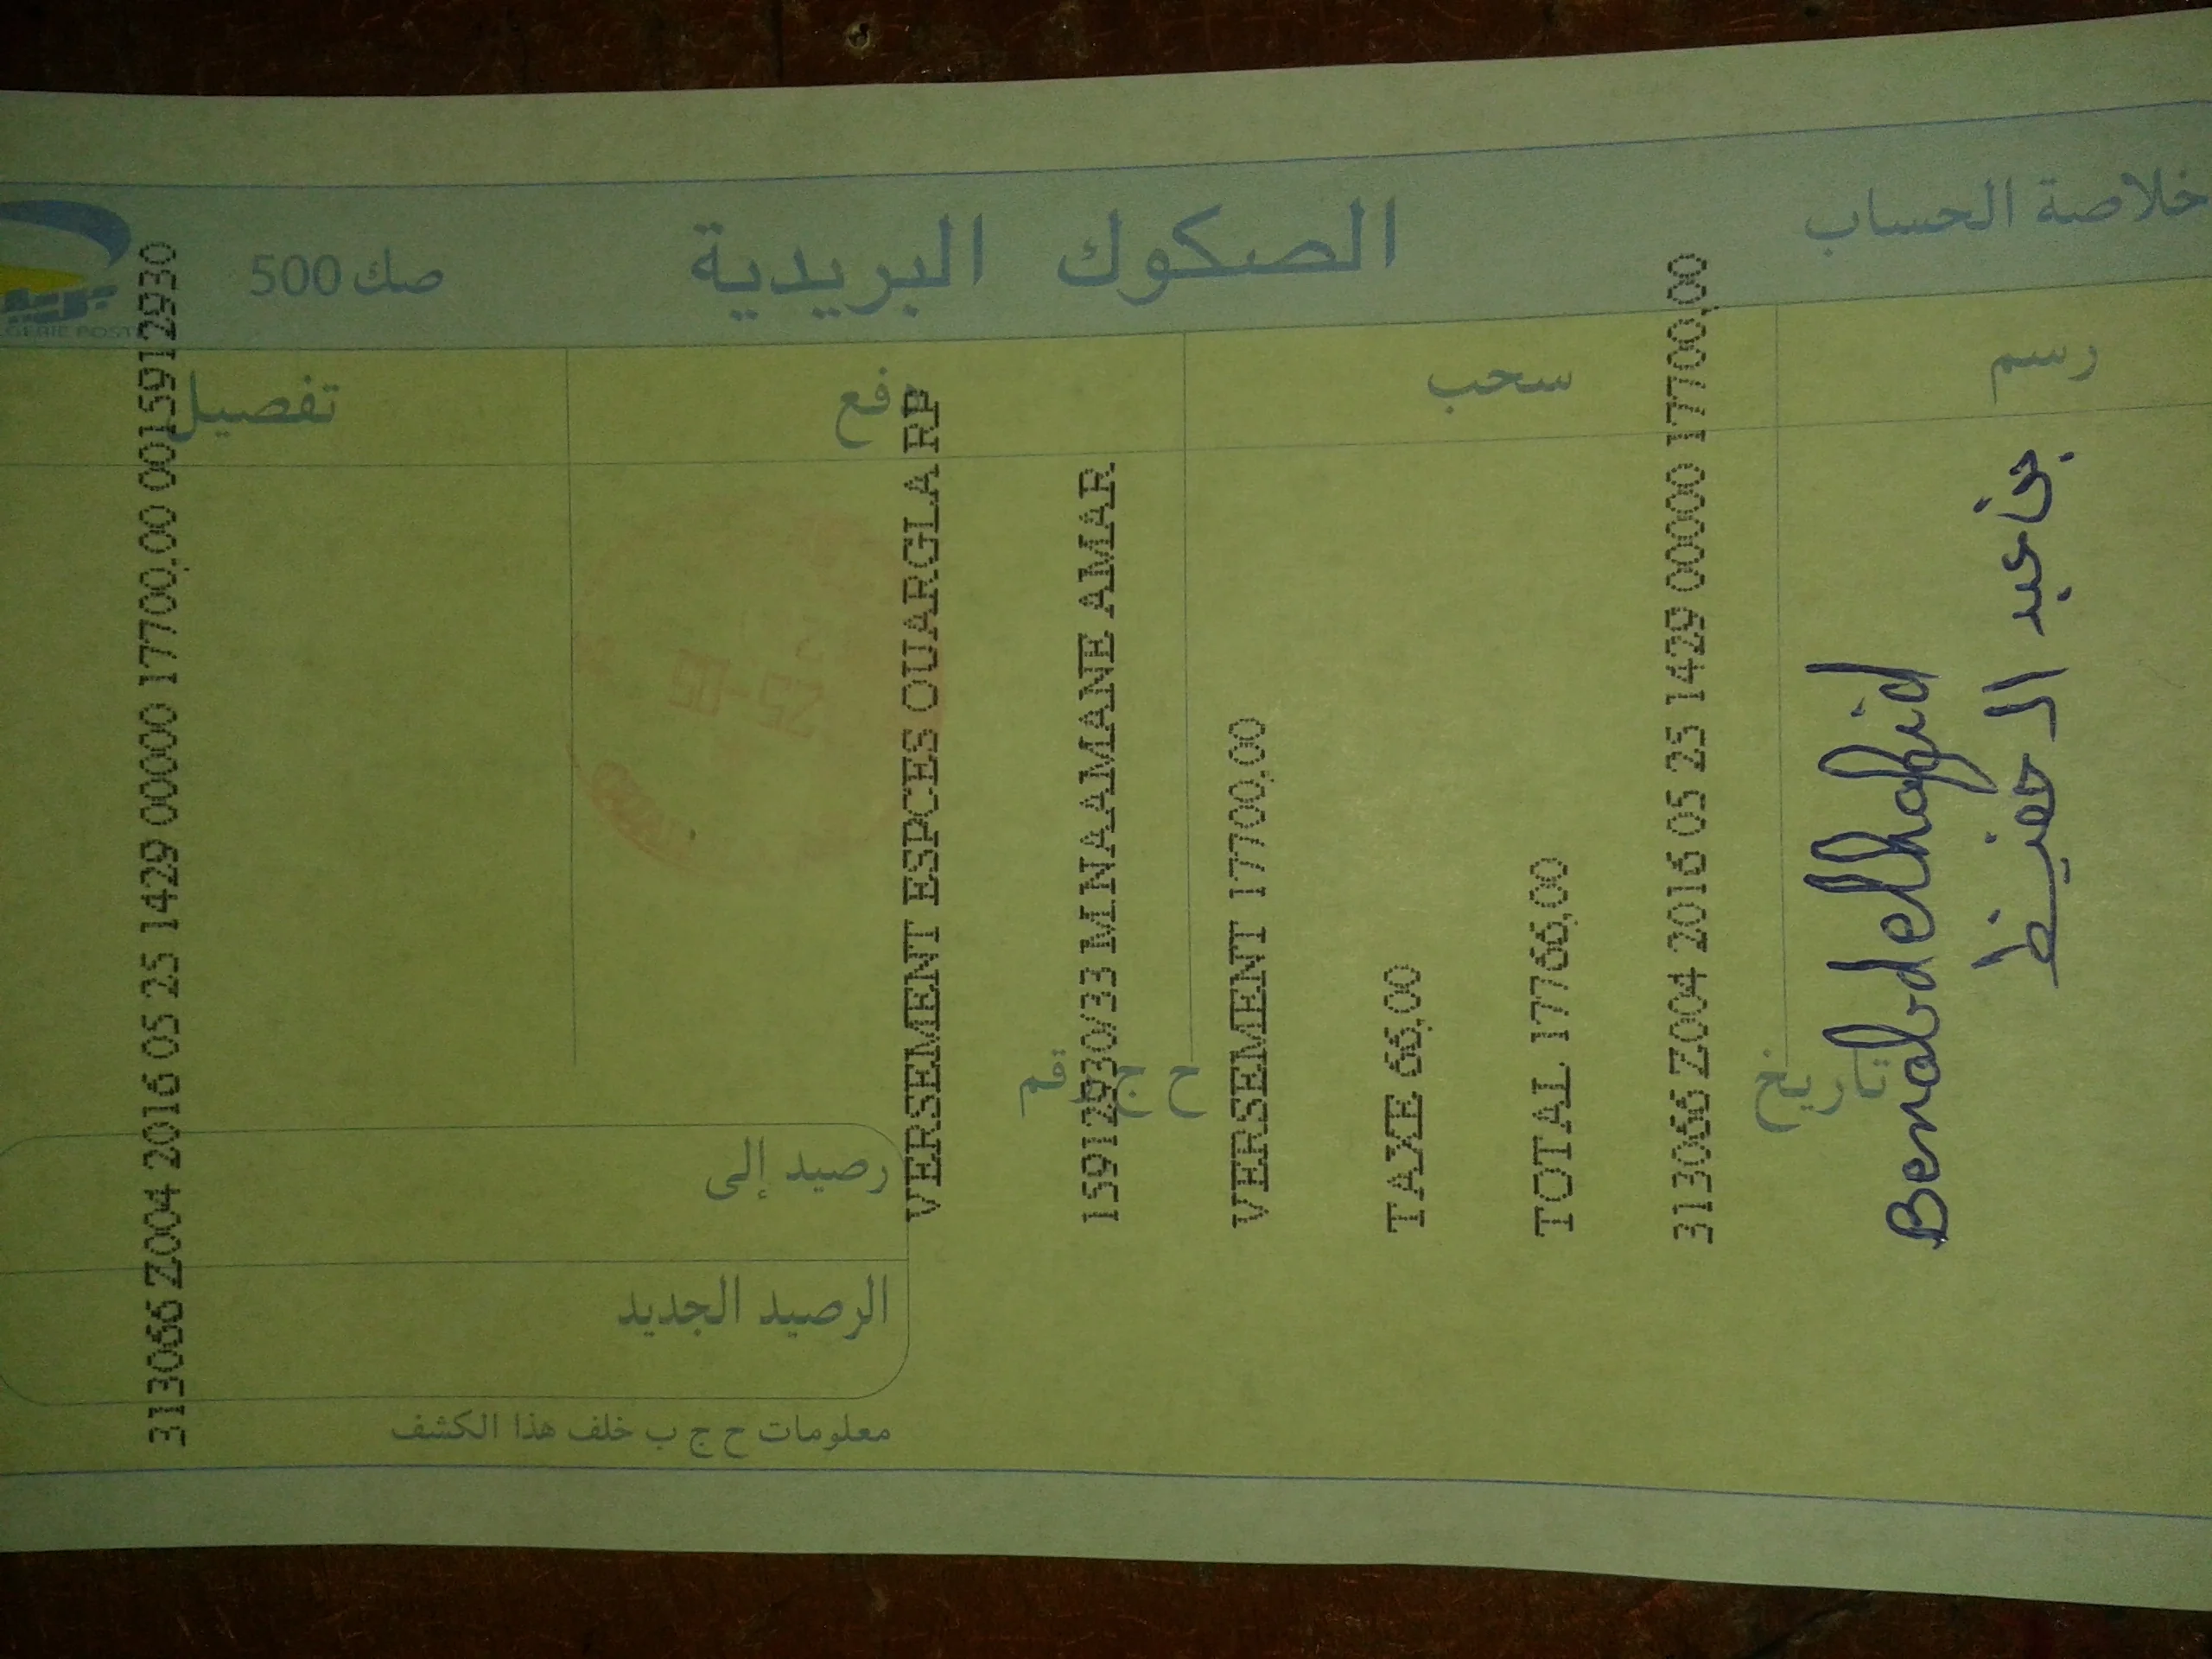 خلاصة الحساب
الصكوك البريدية
صك 500
رسم
سحب
دفع
تفصيل
تاريخ
ح ج رقم
رصيد إلى
الرصيد الجديد
معلومات ح ج ب خلف هذا الكشف
313066 Z004 2016 05 25 1429 0000 17700,00 0015912930
VERSEMENT ESPCES OUARGLA RP
15912930/33 M NAAMANE AMAR
VERSEMENT 17700,00
TAXE 66,00
TOTAL 17766,00
313066 Z004 2016 05 25 1429 0000 17700,00
Benabdelhafid
بن عبد الحفيظ
25-05